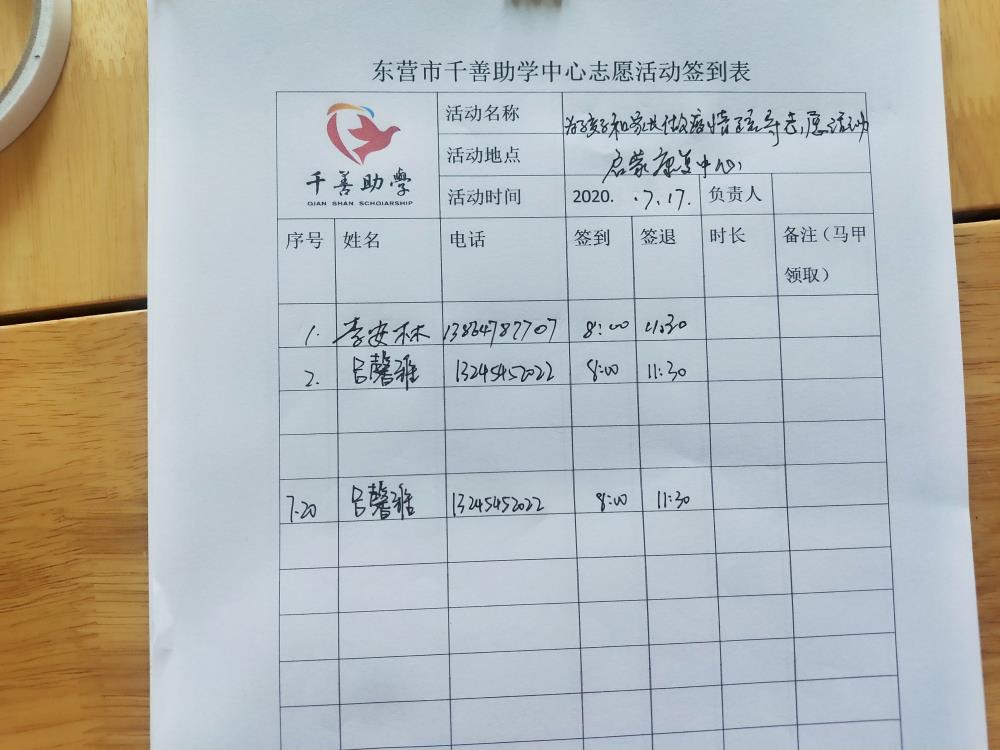 东营市千善助学中心志愿活动签到表
千善助學
QIAN SHAN SCHOLARSHIP
活动名称 为孩子和家长做疫情疏导志愿活动
活动地点 启蒙康复中心
活动时间 2020. .7.17. 负责人
序号 姓名 电话 签到 签退 时长 备注（马甲
领取）
1. 李安林 13834787707 8:00 11:30
2. 吕馨雅 13245452022 8:00 11:30
7.20 吕馨雅 13245452022 8:00 11:30